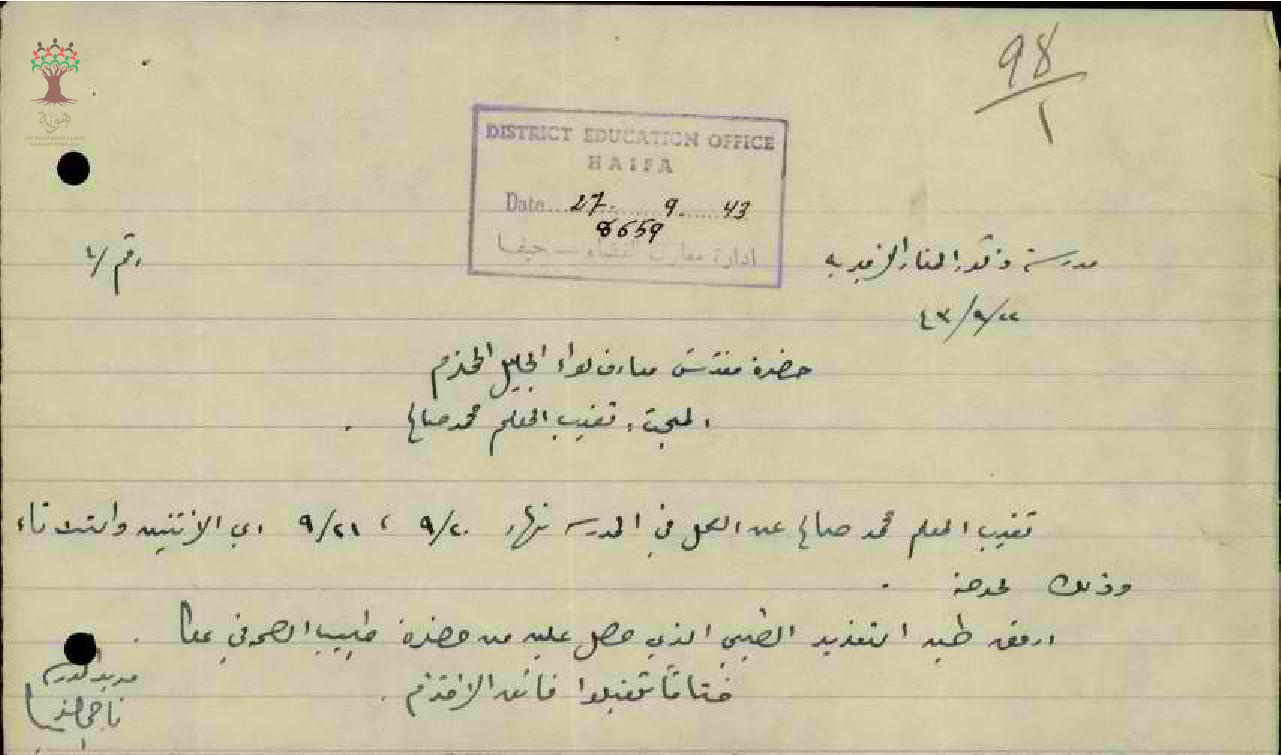 هوية
٩٨/١
DISTRICT EDUCATION OFFICE
HAIFA
Date 27. 9. 43
8659
ادارة معارف القضاء – حيفا
مدرسة ذكور
رقم /٤
٤٣/٩/٢٢
حضرة مفتش معارف لواء الجليل المحترم
المبحث، تغيب المعلم محمد صالح .
تغيب المعلم محمد صالح عن العمل في المدرسه نهار ٩/٢٠ ، ٩/٢١ اي الاثنين والثلاثاء
وذلك لمرضه .
ارفق طيه التقرير الطبي الذي حصل عليه من حضرة طبيب الصحه في عكا .
ختاماً تقبلوا فائق الاحترام .
مدير المدرسة
ناجي